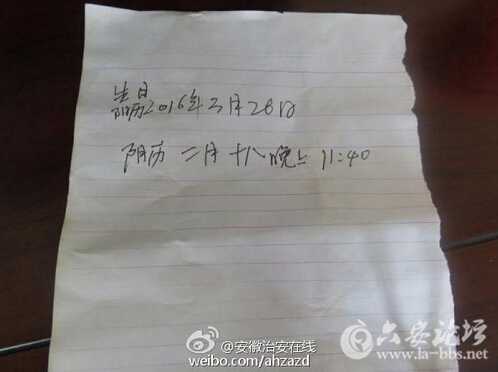 生日
阳历2016年3月26日
阴历 二月十八晚上 11:40
@安徽治安在线
weibo.com/ahzazd
六安论坛
www.la-bbs.net